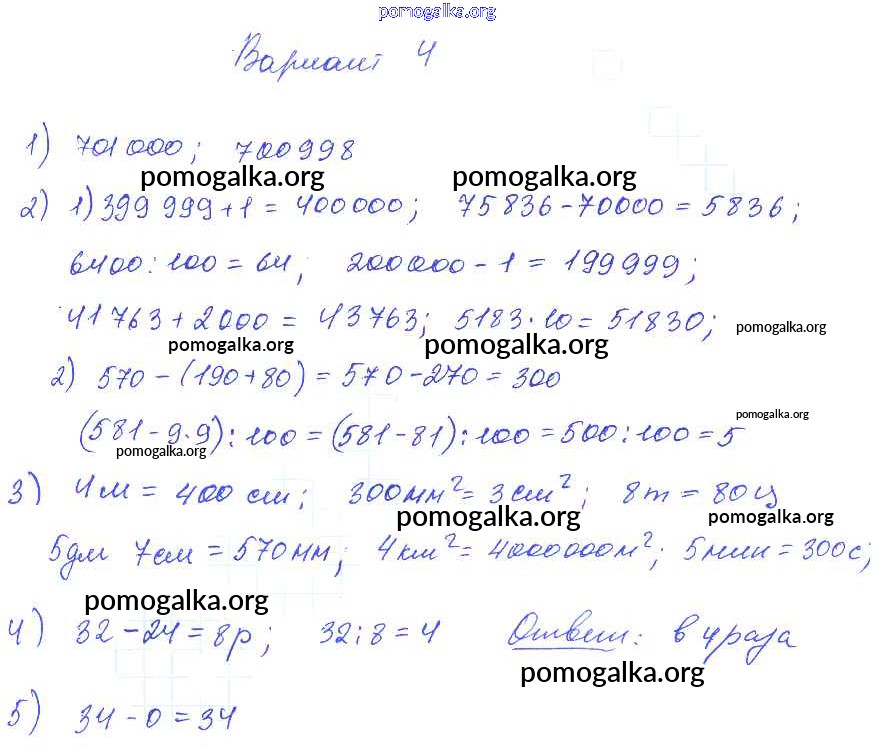 pomogalka.org
Вариант 4
1) 701000; 700998
pomogalka.org pomogalka.org
2) 1) 399 999 + 1 = 400000; 75836 - 70000 = 5836;
6400 : 100 = 64; 200000 - 1 = 199999;
41763 + 2000 = 43763; 5183 · 10 = 51830; pomogalka.org
pomogalka.org pomogalka.org
2) 570 - (190 + 80) = 570 - 270 = 300
pomogalka.org
(581 - 9·9) : 100 = (581 - 81) : 100 = 500 : 100 = 5
pomogalka.org
3) 4м = 400 см; 300мм² = 3 см²; 8т = 80ц
pomogalka.org pomogalka.org
5дм 7см = 570мм; 4км² = 4000000м²; 5мин = 300с;
pomogalka.org
4) 32 - 24 = 8р; 32 : 8 = 4 Ответ: в 4 раза
pomogalka.org
5) 34 - 0 = 34